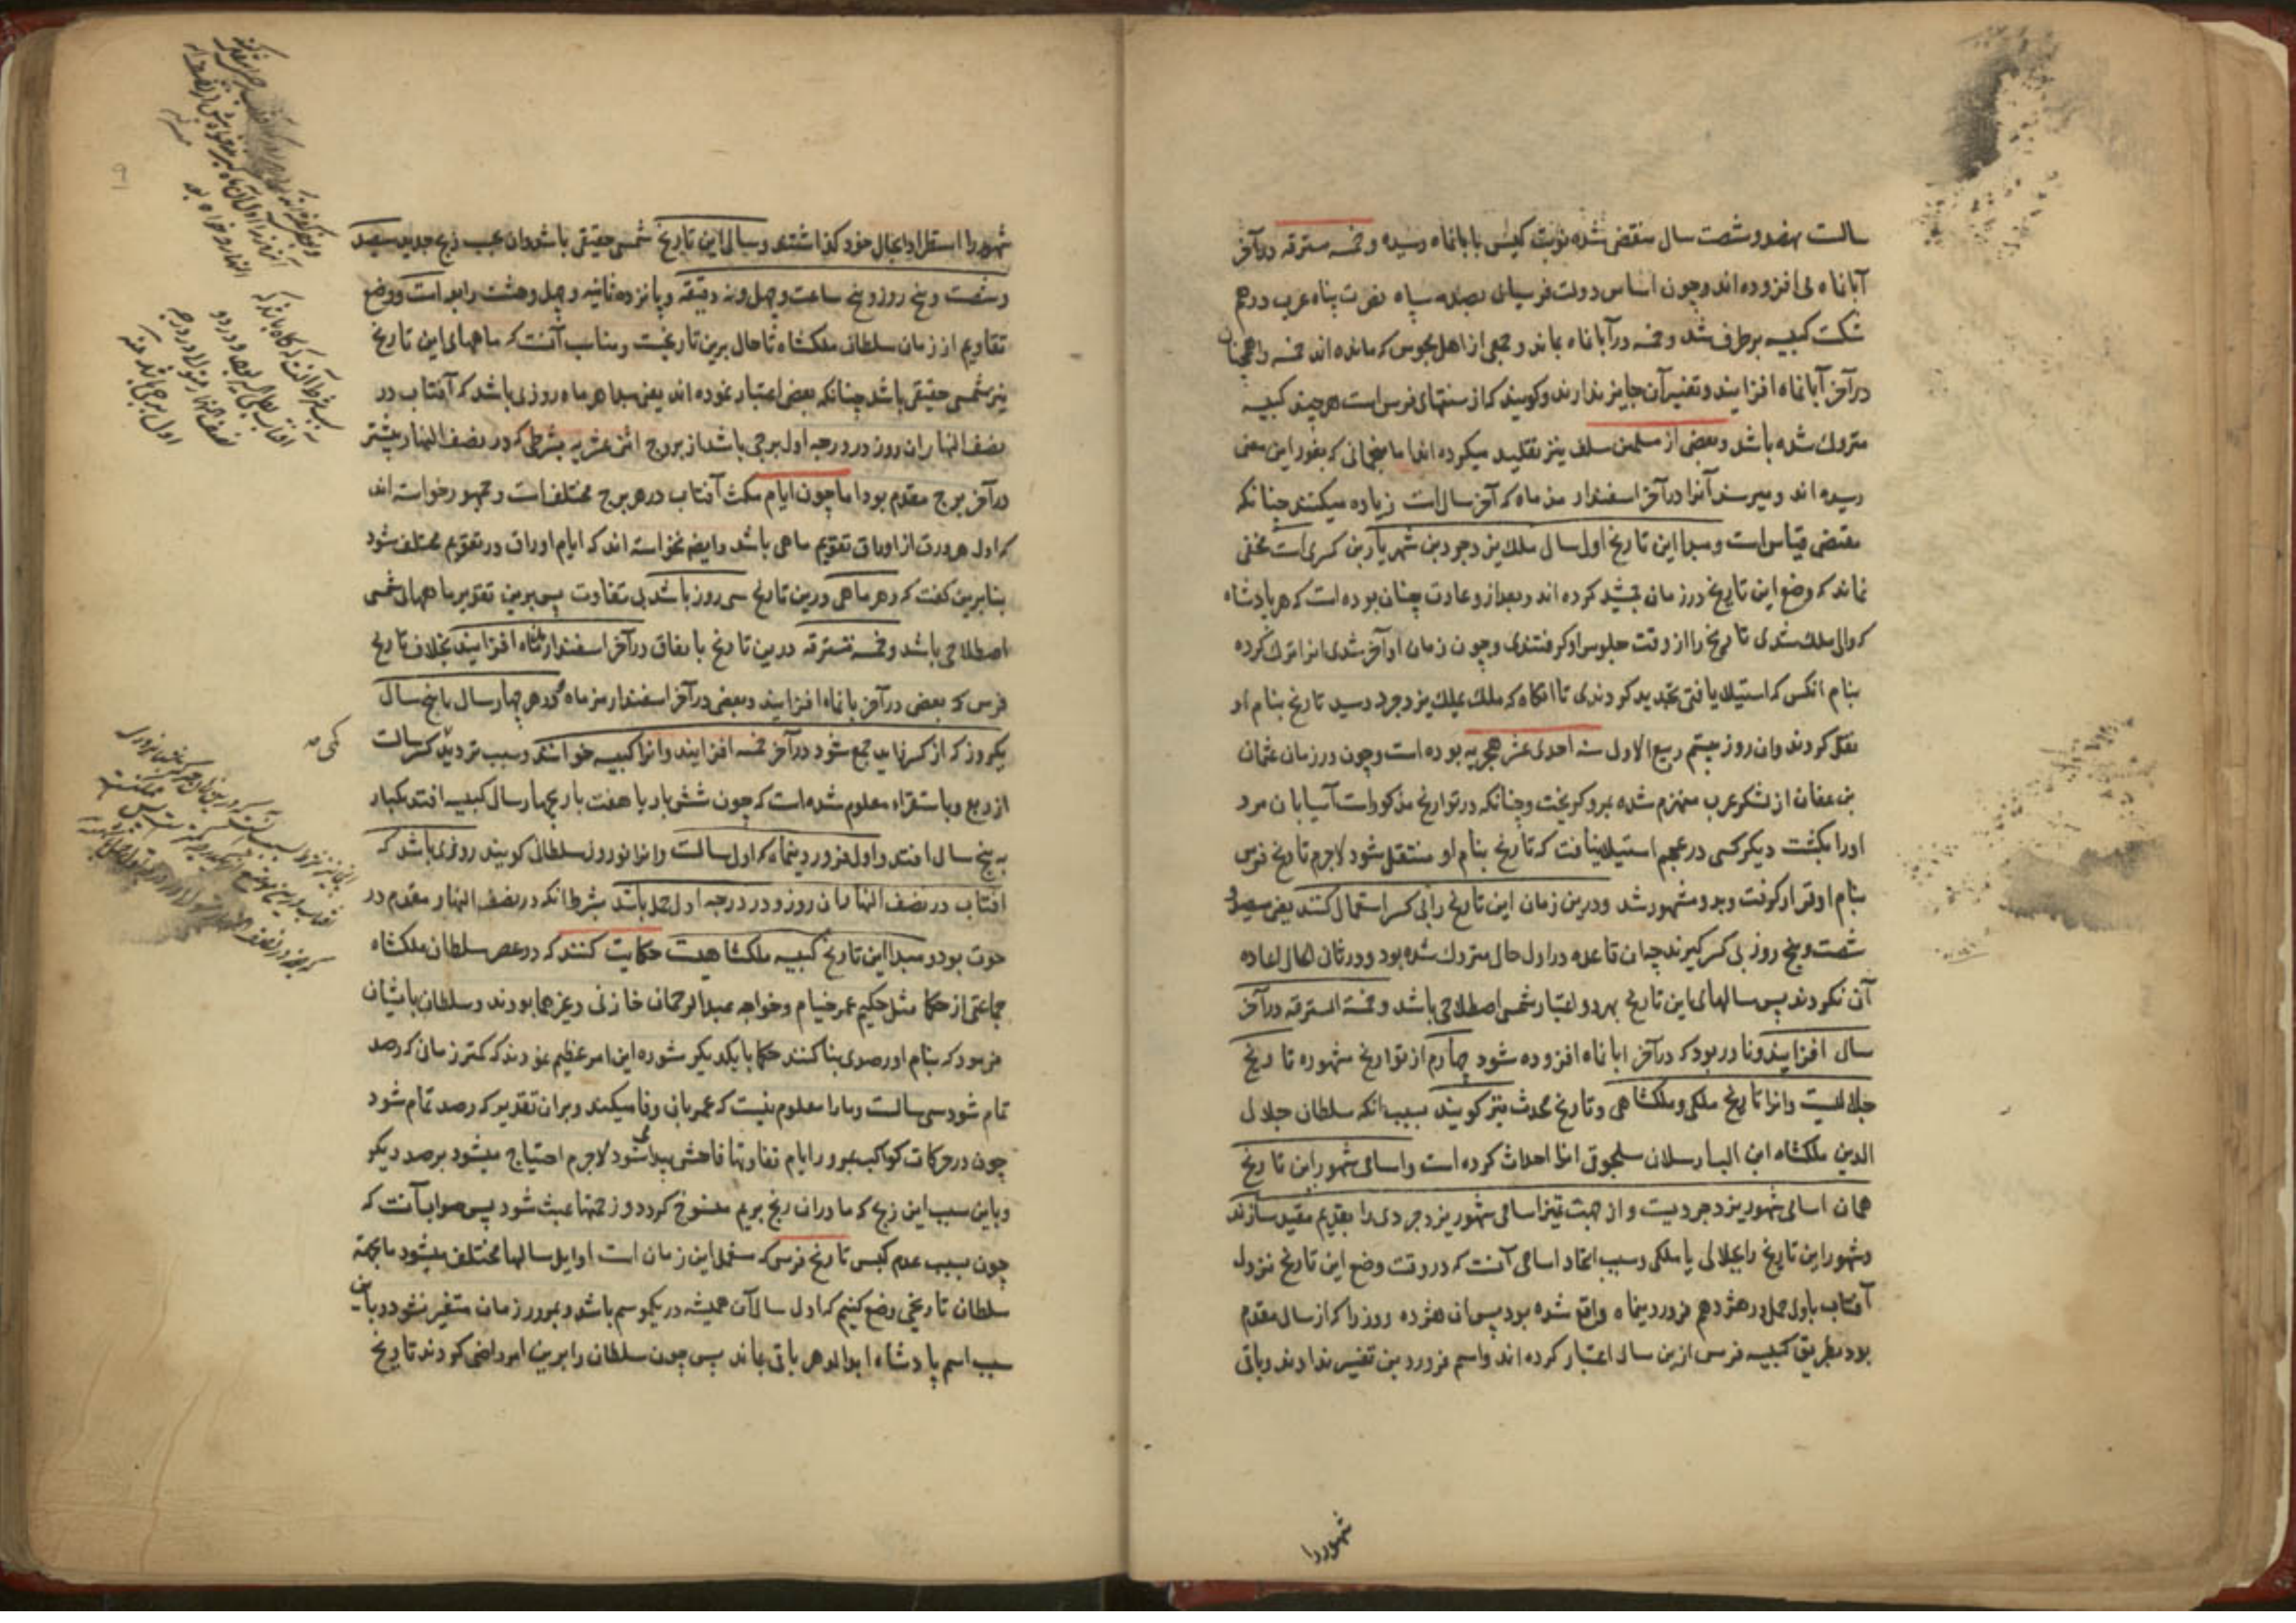 سالست نهصد و شصت سال منقضی شده نوبت کبس بابانماه رسیده و خمسه مسترقه در آخر
آبانماه می افزوده اند و چون اساس دولت فرسیان بصدمه سپاه نصرت پناه عرب درهم
شکست کبیسه برطرف شد و خمسه در آبانماه بماند و جمعی از اهل مجوس که مانده اند خمسه را همچنان
در آخر آبانماه افزایند و تغییر آن جایز ندارند و کویند که از سنتهای فرس است هر چند کبیسه
متروک شده باشد و بعضی از مسلمین سلف نیز تقلید میکرده اند اما منجمانی که بغور این معنی
رسیده اند و میرسند آنرا در آخر اسفندار مذ ماه که آخر سال است زیاده میکنند چنانکه
مقتضی قیاس است و مبدا این تاریخ اول سال ملک یزدجرد بن شهریار بن کسری است مخفی
نماند که وضع این تاریخ در زمان جمشید کرده اند و بعد از و عادت چنان بوده است که هر پادشاه
که والی ملک شدی تاریخ را از وقت جلوس او کرفتندی و چون زمان او آخر شدی انرا ترک کرده
بنام انکس که استیلا یافتی تجدید کردندی تا انکاه که ملک بملک یزدجرد رسید تاریخ بنام او
نقل کردند وان روز بیستم ربیع الاول سنه احدی عشر هجریه بوده است و چون در زمان عثمان
بن عفان از لشکر عرب منهزم شده بمرو کریخت و چنانکه در تواریخ مذکور است آسیابان مرد
اورا بکشت دیکر کسی در عجم استیلا نیافت که تاریخ بنام او منتقل شود لاجرم تاریخ فرس
بنام او قرار کرفت و بدو مشهور شد و درین زمان این تاریخ را بی کسر استعمال کنند یعنی سیصد و
شصت و پنج روز بی کسر کیرند چه ان قاعده در اول حال متروک شده بود و در ثانی الحال اعاده
آن نکردند پس سالهای این تاریخ بهر دو اعتبار شمسی اصطلاحی باشد و خمسة المسترقه در آخر
سال افزایند و نادر بود که در آخر ابانماه افزوده شود چهارم از تواریخ مشهوره تاریخ
جلالیست وانرا تاریخ ملکی و ملکشاهی و تاریخ محدث نیز کویند بسبب انکه سلطان جلال
الدین ملکشاه ابن الب ارسلان سلجوقی انرا احداث کرده است و اسامی شهور این تاریخ
همان اسامی شهور یزدجردیست و از جهت تمیز اسامی شهور یزدجردی را بقدیم مقید سازند
و شهور این تاریخ را بجلالی یا ملکی و سبب اتحاد اسامی آنست که در وقت وضع این تاریخ نزول
آفتاب باول حمل در هژدهم فروردینماه واقع شده بود پس ان هژده روز را که از سال مقدم
بود بطریق کبیسه فرس ازین سال اعتبار کرده اند و اسم فروردین تغییر ندادند و باقی
شهور را
شهور را استطرادا بحال خود کذاشتندی و سالی این تاریخ شمسی حقیقی باشد وان بحسب زیج جدید سیصد
و شصت و پنج روز و پنج ساعت و چهل و نه دقیقه و پانزده ثانیه و چهل و هشت رابعه است و وضع
تقاویم از زمان سلطان ملکشاه تا حال برین تاریخست و مناسب آنست که ماههای این تاریخ
نیز شمسی حقیقی باشد چنانکه بعضی اعتبار نموده اند یعنی مبدا هر ماه روزی باشد که آفتاب در
نصف النهار ان روز در درجه اول برجی باشد از بروج اثنی عشریه بشرطی که در نصف النهار پیشتر
در آخر برج مقدم بود اما چون ایام مکث آفتاب در هر برج مختلف است و جمهور خواسته اند
که اول هر ورق از اوراق تقویم ماهی باشد و ایضا نخواسته اند که ایام اوراق در تقویم مختلف شود
بنابرین کفت که هر ماهی درین تاریخ سی روز باشد بی تفاوت پس برین تقویم ماههای شمسی
اصطلاحی باشد و خمسه مسترقه درین تاریخ باتفاق در آخر اسفندارمذ ماه افزایند بخلاف تاریخ
فرس که بعضی در آخر بانماه افزایند و بعضی در آخر اسفندارمز ماه و در هر چهار سال یا پنج سال
یکروز که از کسر زاید جمع شود در آخر خمسه افزایند وانرا کبیسه خوانند و سبب تردید کسر سالست
از ربع و باستقراء معلوم شده است که چون شش بار یا هفت بار بچهار سال کبیسه افتد یکبار
به پنج سال افتد و اول فروردینماه که اول سالست وانرا نوروز سلطانی کویند روزی باشد که
افتاب در نصف النهار ان روز در درجه اول حمل باشد بشرط انکه در نصف النهار مقدم در
حوت بود و مبدا این تاریخ کبیسه ملکشاهیست حکایت کنند که در عصر سلطان ملکشاه
جماعتی از حکما مثل حکیم عمر خیام و خواجه عبد الرحمان خازنی و غیرهما بودند و سلطان بایشان
فرمود که بنام او رصدی بنا کنند حکما با یکدیکر مشوره این امر عظیم نمودند که کمتر زمانی که رصد
تمام شود سی سالست و مارا معلوم نیست که عمر بانی وفا میکند و بران تقدیر که رصد تمام شود
چون در حرکات کواکب بمرور ایام تفاوتها فاحش پیدا شود لاجرم احتیاج میشود برصد دیکر
و باین سبب این زیج که ما دران رنج بریم منسوخ کردد و زحمتها عبث شود پس صواب آنست که
چون بسبب عدم کبس تاریخ فرس که مستعمل این زمان است اوایل سالها مختلف میشود ما بجهة
سلطان تاریخی وضع کنیم که اول سال آن همیشه در یکموسم باشد و بمرور زمان متغیر نشود و باین
سبب اسم پادشاه ابدالدهر باقی بماند پس چون سلطان را برین امر راضی کردند تاریخ